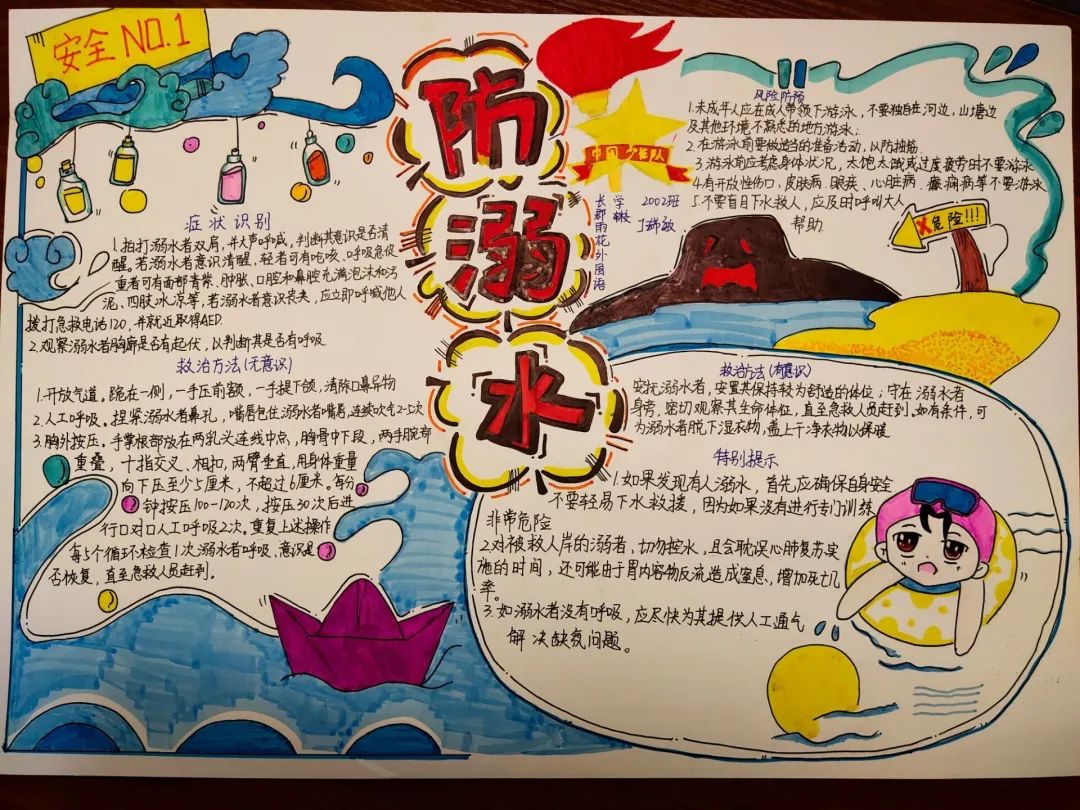 安全 NO.1
防溺水
中国少年队
长郡雨花外国语
学校
2002班
风险防预
1.未成年人应在成人带领下游泳，不要独自在河边，山塘边
及其他环境不熟悉的地方游泳；
2.在游泳前要做适当的准备活动，以防抽筋
3.游泳前应考虑身体状况，太饱太饿或过度疲劳时不要游泳
4.有开放性伤口，皮肤病、眼疾、心脏病、癫痫病等不要游泳
5.不要盲目下水救人，应及时呼叫大人
帮助
危险!!!
症状识别
1.拍打溺水者双肩，并大声呼喊，判断其意识是否清
醒。若溺水者意识清醒，轻者可有呛咳、呼吸急促
重者可有面部青紫、肿胀、口腔和鼻腔充满泡沫和污
泥、四肢冰凉等，若溺水者意识丧失，应立即呼喊他人
拨打急救电话120，并就近取得AED.
2.观察溺水者胸廓是否有起伏，以判断其是否有呼吸
救治方法(无意识)
1.开放气道，跪在一侧，一手压前额，一手提下颌，清除口鼻异物
2.人工呼吸。捏紧溺水者鼻孔，嘴唇包住溺水者嘴唇，连续吹气2-1次
3.胸外按压。手掌根部放在两乳头连线中点，胸骨中下段，两手腕部
重叠，十指交叉、相扣，两臂垂直，用身体重量
向下压至少5厘米，不超过6厘米。每分
钟按压100-120次，按压30次后进
行口对口人工呼吸2次。重复上述操作
每5个循环检查1次溺水者呼吸、意识是
否恢复，直至急救人员赶到。
救治方法(有意识)
安抚溺水者，安置其保持较为舒适的体位；守在溺水者
身旁，密切观察其生命体位，直至急救人员赶到。如有条件，可
为溺水者脱下湿衣物，盖上干净衣物以保暖
特别提示
1.如果发现有人溺水，首先应确保自身安全
不要轻易下水救援，因为如果没有进行专门训练
非常危险
2.对被救人岸的溺者，切勿控水，且会耽误心肺复苏实
施的时间，还可能由于胃内容物反流造成窒息，增加死亡几
率。
3.如溺水者没有呼吸，应尽快为其提供人工通气
解决缺氧问题。